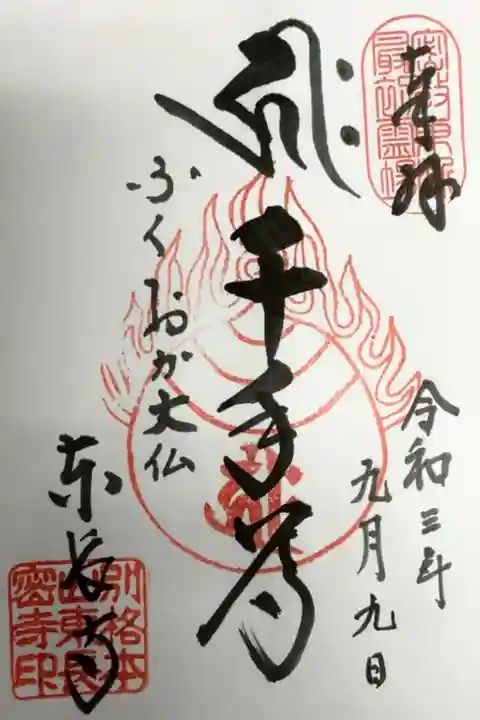 奉拝
最初霊場
令和三年
九月九日
ह्रीः
千手尊
ふくおか大仏
東長寺
別格本
山東長
密寺印